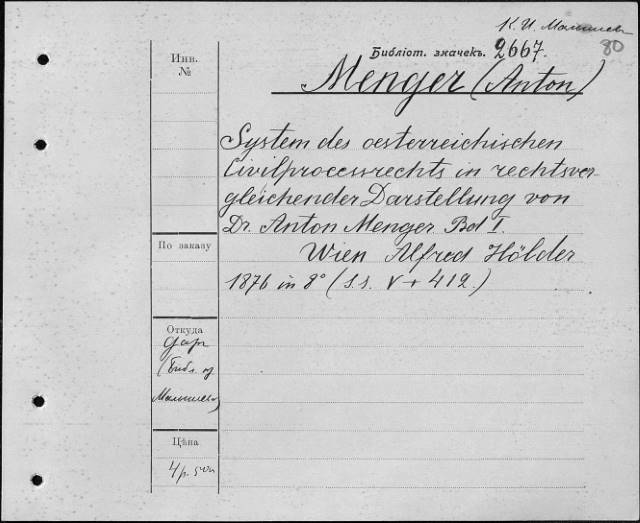 К. И. Малышев
80
Библіот. значекъ. 2667.
Menger (Anton)
Инв.
№
System des oesterreichischen
Civilprocessrechts in rechtsver-
gleichender Darstellung von
Dr. Anton Menger Bd I.
Wien Alfred Hölder
1876 in 8° (S.S. V + 412.)
По заказу
Откуда
дар
(Библ.
Малышева)
Цѣна
4 р. 50 к